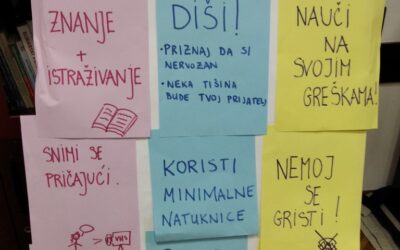 ZNANJE
+
ISTRAŽIVANJE
DIŠI!
• PRIZNAJ DA SI
NERVOZAN
• NEKA TIŠINA
BUDE TVOJ PRIJATELJ
NAUČI
NA
SVOJIM
GREŠKAMA!
SNIMI SE
PRIČAJUĆI.
VHS
KORISTI
MINIMALNE
NATUKNICE
NEMOJ
SE
GRISTI!